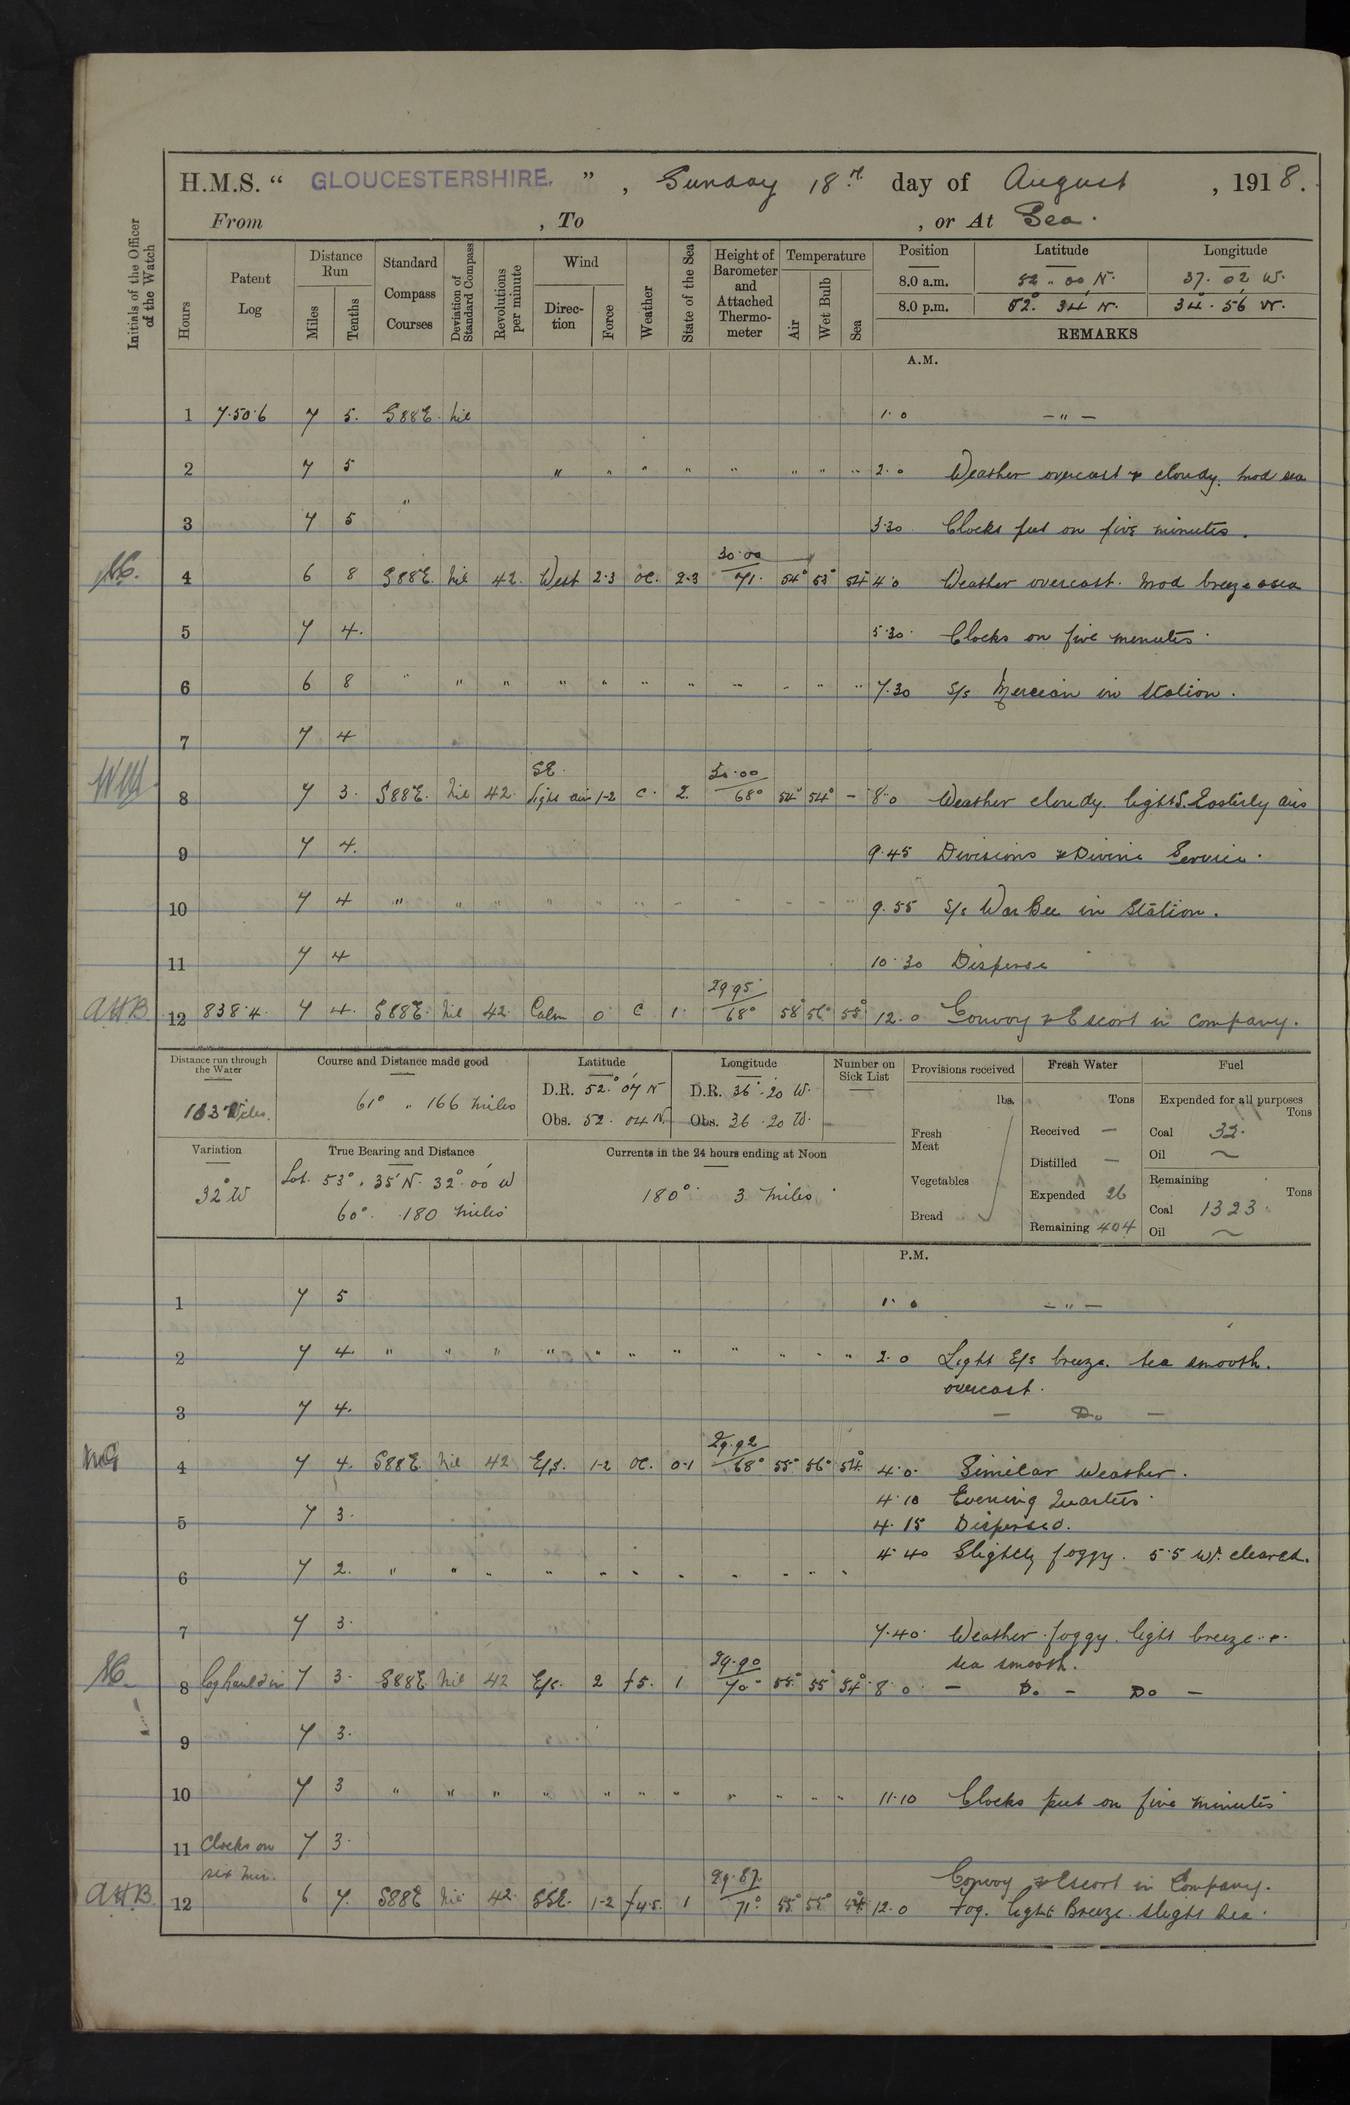 H.M.S. “ GLOUCESTERSHIRE. ” , Sunday 18th day of August , 1918.
From , To , or At Sea.
Initials of the Officer of the Watch
Hours
Patent Log
Distance Run
Miles
Tenths
Standard Compass Courses
Deviation of Standard Compass
Revolutions per minute
Wind
Direction
Force
Weather
State of the Sea
Height of Barometer and Attached Thermometer
Temperature
Air
Wet Bulb
Sea
Position Latitude Longitude
8.0 a.m. 52 " 00 N. 37. 02 W.
8.0 p.m. 52° 34' N. 34° 56' W.
REMARKS
A.M.
1 7.50.6 7 5. S88E. Nil 1.0 — " —
2 7 5 " " " " " " " " 2.0 Weather overcast & cloudy. Mod sea
3 7 5 " 3.30 Clocks put on five minutes.
4 6 8 S88E. Nil 42. West 2.3 oc. 2-3 30.00 / 71. 54° 53° 54° 4.0 Weather overcast. Mod breeze & sea
5 7 4. 5.30. Clocks on five minutes.
6 6 8 " " " " " " " " " " " 7.30 S/s Mercian in Station.
7 7 4
WM 8 7 3. S88E. Nil 42. SE. light air 1-2 c. 2. 30.00 / 68° 54° 54° – 8.0 Weather cloudy. light S. Easterly airs
9 7 4. 9.45 Divisions & Divine Service.
10 7 4 " " " " " " " " " " " 9.55 S/s War Bee in Station.
11 7 4 10.30 Disperse
AHB 12 838.4 7 4. S88E. Nil 42. Calm 0 c 1. 29.95 / 68° 58° 56° 55° 12.0 Convoy & Escort in company.
Distance run through the Water
163 Miles.
Course and Distance made good
61° " 166 Miles
Latitude
D.R. 52° 07' N
Obs. 52. 04 N.
Longitude
D.R. 36°. 20 W.
Obs. 36. 20 W.
Number on Sick List
–
Provisions received
lbs.
Fresh Meat
Vegetables
Bread
Fresh Water
Tons
Received —
Distilled —
Expended 26
Remaining 404
Fuel
Expended for all purposes
Tons
Coal 32.
Oil ~
Remaining
Tons
Coal 1323.
Oil ~
Variation
32° W
True Bearing and Distance
Lat. 53°. 35' N. 32°. 00' W
60°. 180 Miles
Currents in the 24 hours ending at Noon
180°. 3 Miles
P.M.
1 7 5 1.0 — " —
2 7 4. " " " " " " " " " " " 2.0 Light E/S breeze. Sea smooth.
overcast.
3 7 4. — Do —
4 7 4. S88E Nil 42 E/S. 1-2 oc. 0-1 29.92 / 68° 55° 56° 54° 4.0. Similar weather.
4.10 Evening Quarters.
5 7 3. 4.15 Dispersed.
4.40 Slightly foggy. 5.5 Wr. cleared.
6 7 2. " " " " " " " " " " "
7 7 3. 7.40. Weather foggy. light breeze &
sea smooth.
8 log hauled in 7 3. S88E Nil 42 E/S. 2 f5. 1 29.90 / 70° 55° 55° 54° 8.0 — Do — Do —
9 7 3.
10 7 3 " " " " " " " " " " " 11.10 Clocks put on five minutes
11 Clocks on 7 3.
six min. Convoy & Escort in Company.
AHB 12 6 7. S88E Nil 42. SSE. 1-2 f4.5. 1 29.87. / 71° 55° 55° 54° 12.0 Fog. light Breeze. Slight Sea.